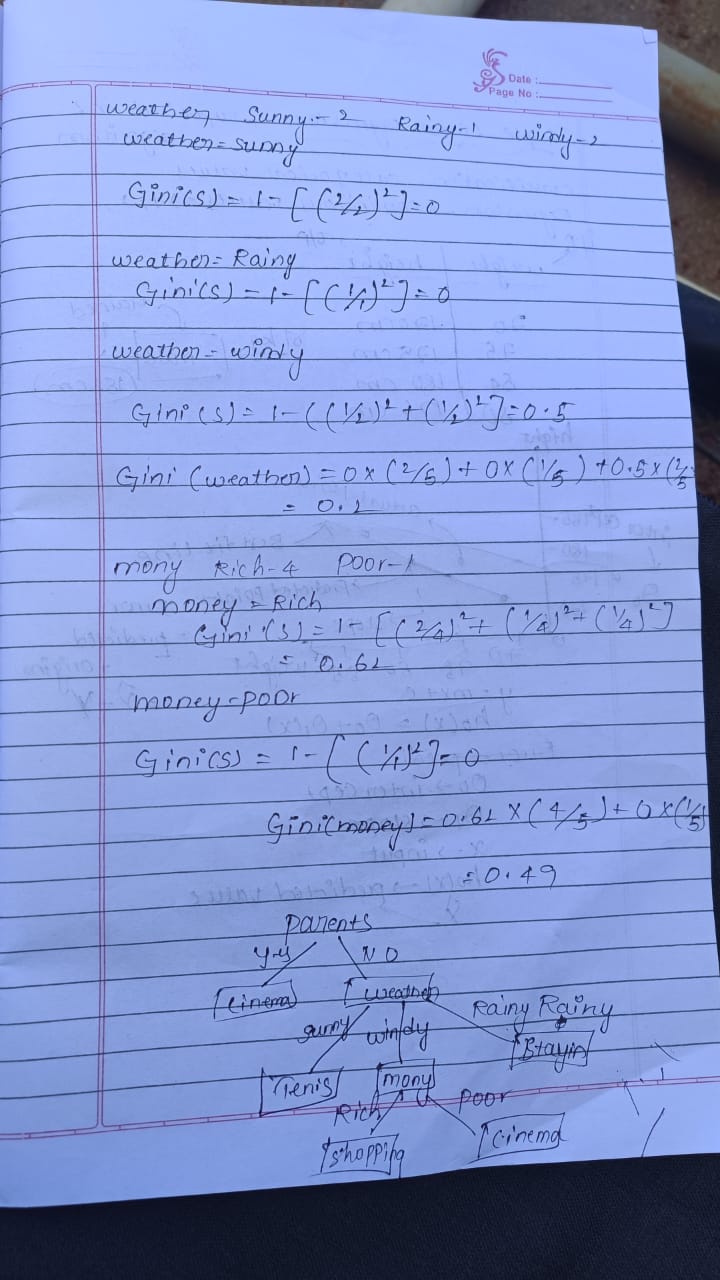 Date :
Page No :
weather, Sunny - 2 Rainy - 1 windy - 2
weather = sunny
Gini(S) = 1 - [(2/2)²] = 0
weather = Rainy
Gini(S) = 1 - [(1/1)²] = 0
weather = windy
Gini(S) = 1 - ((1/2)² + (1/2)²] = 0.5
Gini (weather) = 0 x (2/5) + 0 x (1/5) + 0.5 x (2/5
= 0.2
mony Rich - 4 Poor - 1
money = Rich
Gini(S) = 1 - [(2/4)² + (1/4)² + (1/4)²]
= 0.62
money = poor
Gini(S) = 1 - [(1/1)²] = 0
Gini(money) = 0.62 x (4/5) + 0 x (1/5)
= 0.49
parents
yes NO
Cinema weather Rainy Rainy
sunny windy Stayin
Tenis mony
Rich Poor
shopping cinema